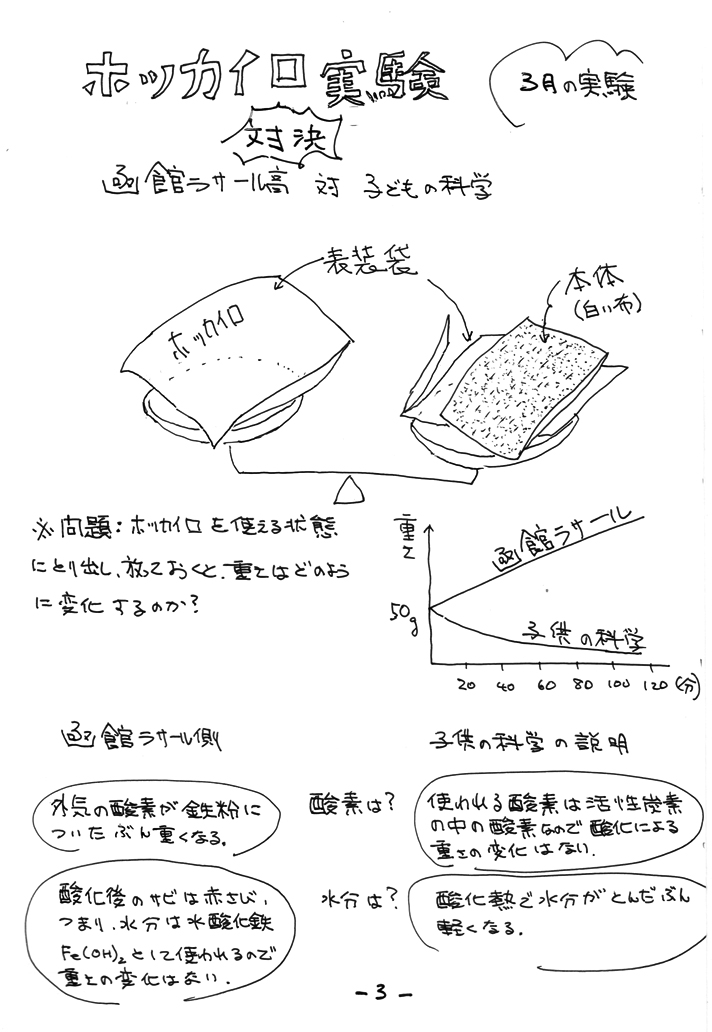 ホッカイロ実験
3月の実験
対決
函館ラサール高 対 子どもの科学
表装袋
本体
(白い布)
ホッカイロ
※問題:ホッカイロを使える状態
にとり出し、放っておくと、重さはどのよう
に変化するのか?
重さ
函館ラサール
50g
子供の科学
20 40 60 80 100 120 (分)
函館ラサール側
子供の科学の説明
外気の酸素が鉄粉に
ついたぶん重くなる。
酸素は?
使われる酸素は活性炭素
の中の酸素なので酸化による
重さの変化はない.
酸化後のサビは赤さび,
つまり、水分は水酸化鉄
Fe(OH)₂として使われるので
重さの変化はない.
水分は?
酸化熱で水分がとんだぶん
軽くなる.
-3-